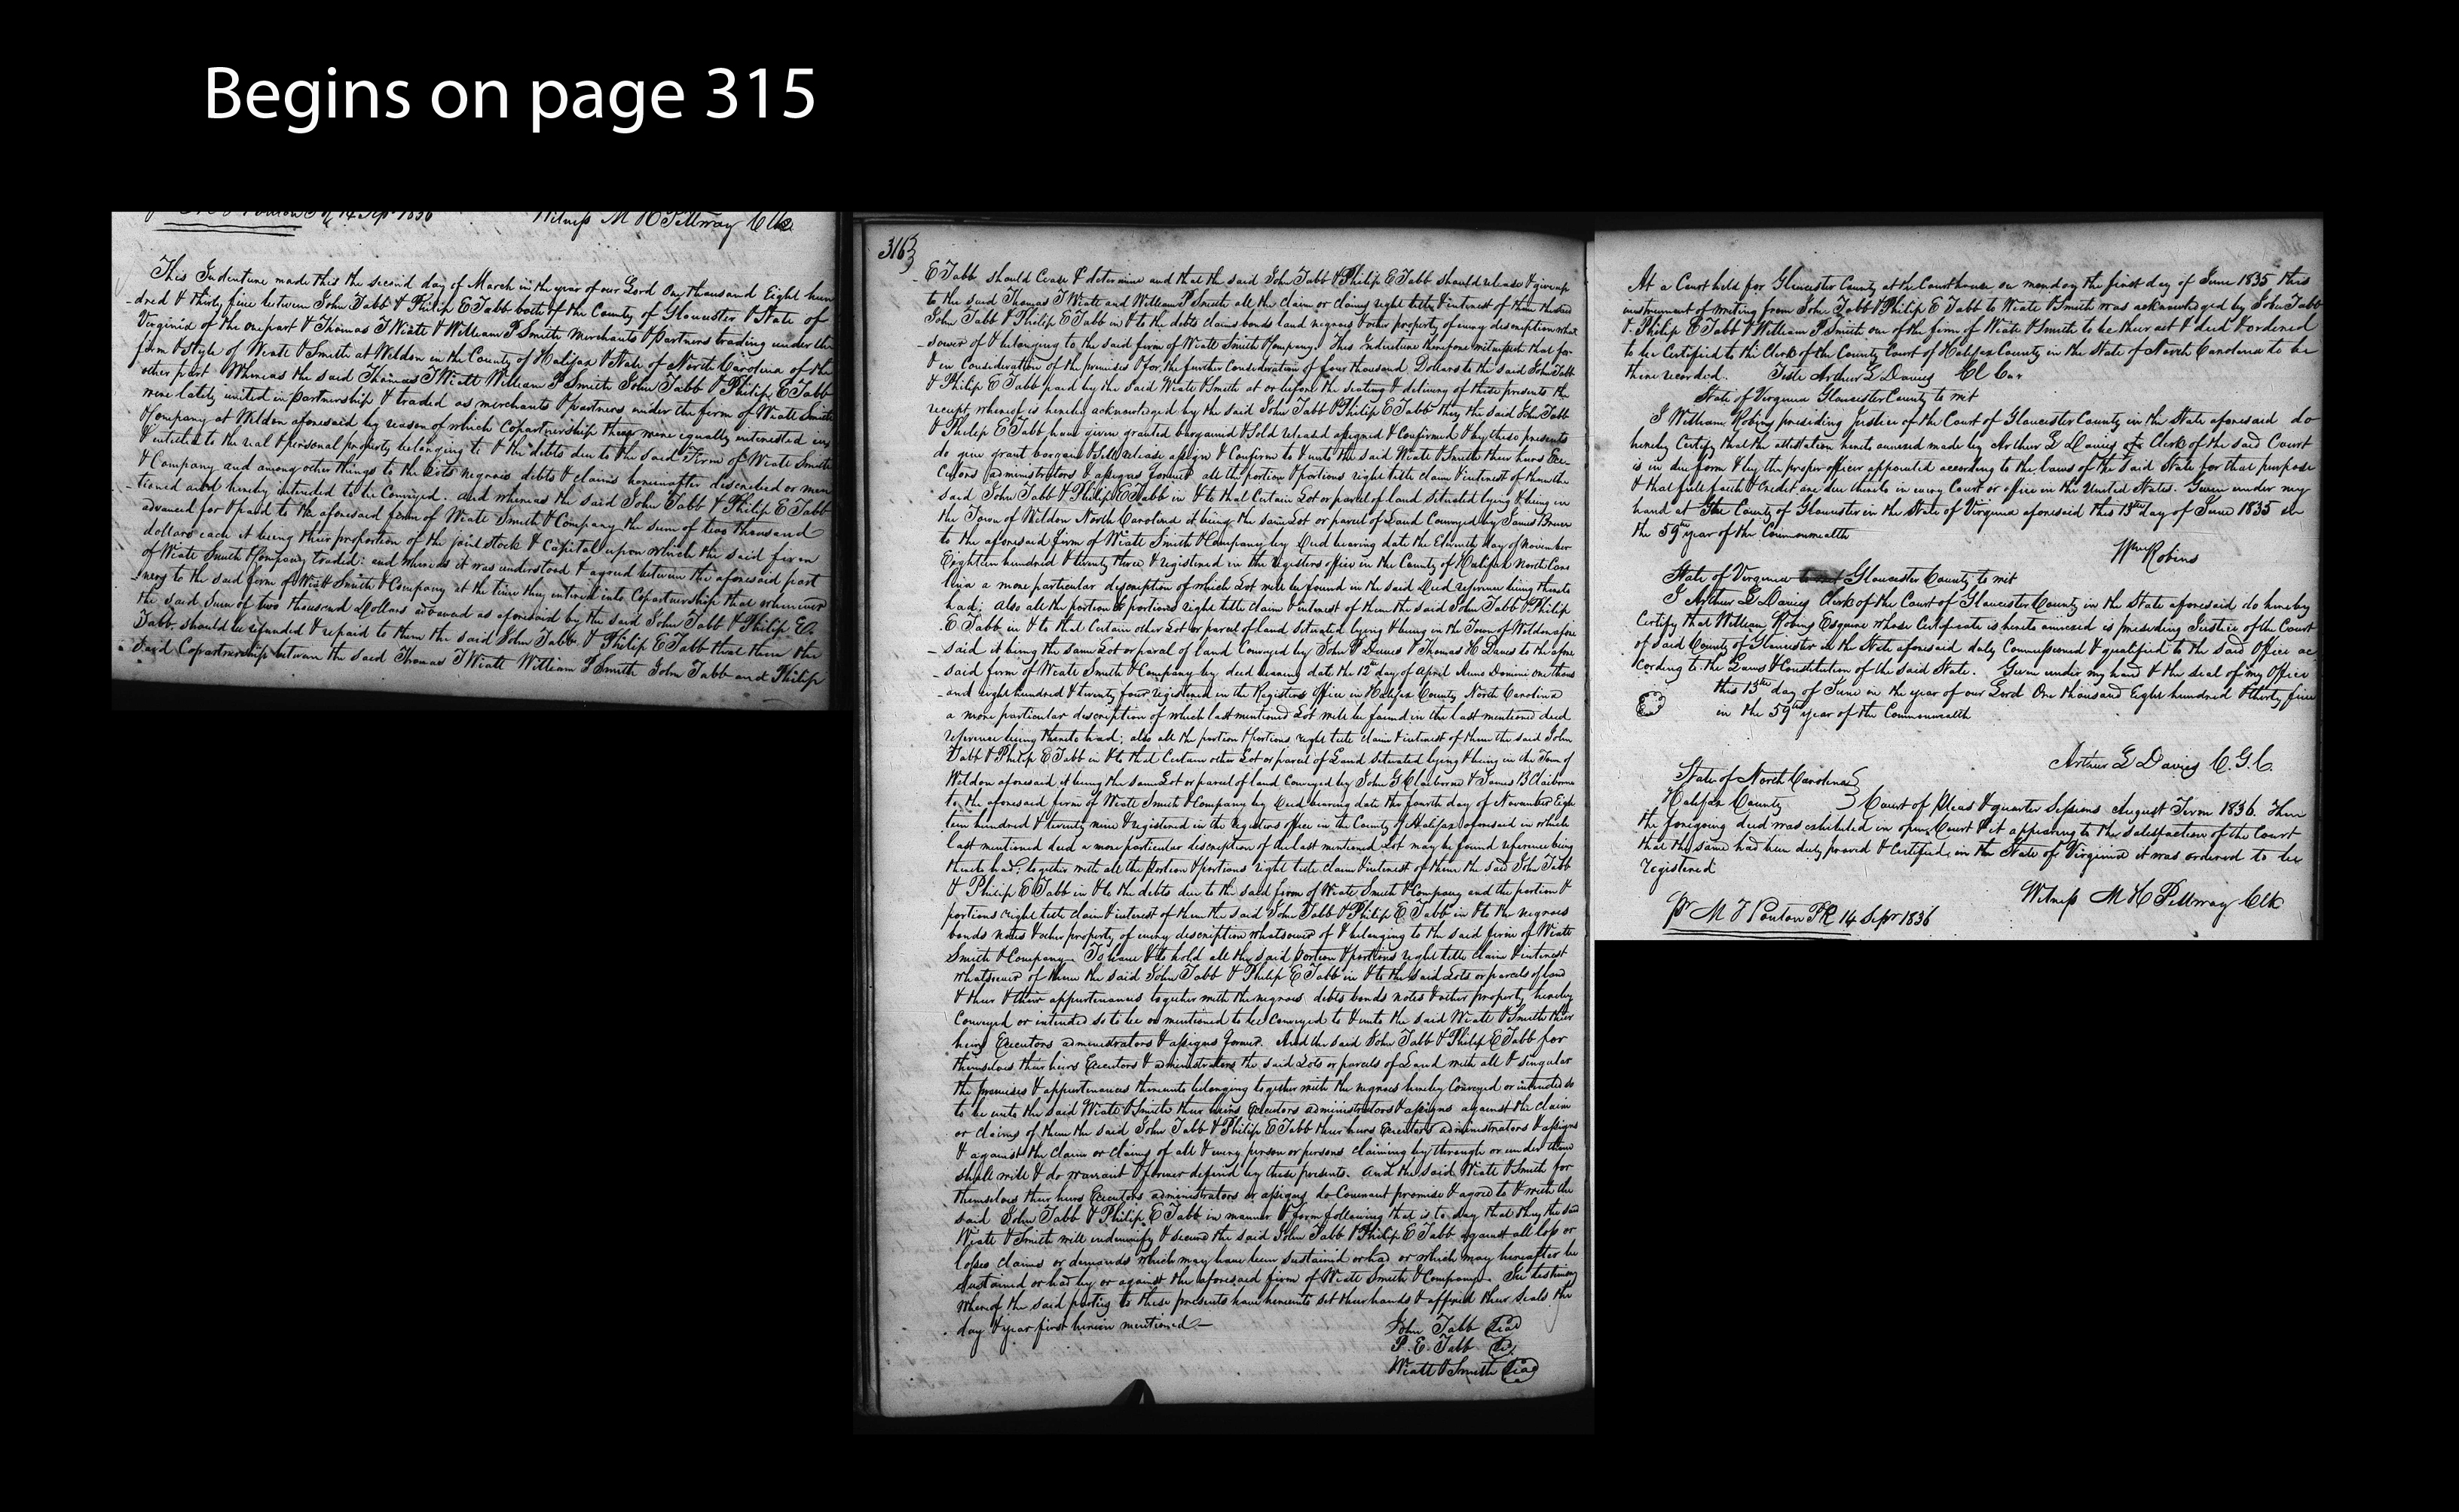 Begins on page 315
14 Sepr 1836 Witness M H Pettway Clk
This Indenture made this the second day of March in the year of our Lord One thousand Eight hun
-dred & thirty five between John Tabb & Philip E Tabb both of the County of Gloucester & State of
Virginia of the one part & Thomas T Wiatt & William P Smith Merchants & partners trading under the
firm & style of Wiatt & Smith at Weldon in the County of Halifax & State of North Carolina of the
other part Whereas the said Thomas T Wiatt William P Smith John Tabb & Philip E Tabb
were lately united in partnership & traded as merchants & partners under the firm of Wiatt Smith
& Company at Weldon aforesaid by reason of which Copartnership they were equally interested in
& entitled to the real & personal property belonging to & the debts due to the said Firm of Wiatt Smith
& Company and among other things to the Lots negroes debts & claims hereinafter described or men
-tioned and hereby intended to be Conveyed. and whereas the said John Tabb & Philip E Tabb
advanced for & paid to the aforesaid firm of Wiatt Smith & Company the sum of two thousand
dollars each it being their proportion of the joint stock & Capital upon which the said firm
of Wiatt Smith & Company traded: and whereas it was understood & agreed between the aforesaid part
-ners to the said firm of Wiatt Smith & Company at the time they entered into Copartnership that whenever
the said Sum of two thousand Dollars advanced as aforesaid by the said John Tabb & Philip E
Tabb should be refunded & repaid to them the said John Tabb & Philip E Tabb that then the
said Copartnership between the said Thomas T Wiatt William P Smith John Tabb and Philip
316
E Tabb should Cease & determine and that the said John Tabb & Philip E Tabb should release & give up
to the said Thomas T Wiatt and William P Smith all the claim or claims right title & interest of them the said
John Tabb & Philip E Tabb in & to the debts claims bonds land negroes & other property of every description what
-soever of & belonging to the said firm of Wiatt Smith & Company. This Indenture therefore witnesseth that for
& in Consideration of the premises & for the further Consideration of four thousand Dollars to the said John Tabb
& Philip E Tabb paid by the said Wiatt & Smith at or before the sealing & delivery of these presents the
receipt whereof is hereby acknowledged by the said John Tabb & Philip E Tabb they the said John Tabb
& Philip E Tabb have given granted bargained & Sold released assigned & Confirmed & by these presents
do give grant bargain & Sell release assign & Confirm to & unto the said Wiatt & Smith their heirs Exe-
cutors administrators & assigns forever all the portion & portions right title claim & interest of them the
said John Tabb & Philip E Tabb in & to that Certain Lot or parcel of land situated lying & being in
the Town of Weldon North Carolina it being the same Lot or parcel of Land Conveyed by James
to the aforesaid firm of Wiatt Smith & Company by Deed bearing date the Eleventh day of November
Eighteen hundred & twenty three & registered in the registers office in the County of Halifax North Caro
lina a more particular description of which Lot will be found in the said Deed reference being thereto
had; Also all the portion & portions right title claim & interest of them the said John Tabb & Philip
E Tabb in & to that Certain other Lot or parcel of land situated lying & being in the Town of Weldon afore
- said it being the same Lot or parcel of land Conveyed by John P Davis & Thomas H Davis to the afore
- said firm of Wiatt Smith & Company by deed bearing date the 12th day of April Anno Domini one thous
- and eight hundred & twenty four registered in the Registers Office in Halifax County North Carolina
a more particular description of which last mentioned Lot will be found in the last mentioned deed
reference being thereto had; also all the portion & portions right title claim & interest of them the said John
Tabb & Philip E Tabb in & to that Certain other Lot or parcel of Land situated lying & being in the Town of
Weldon aforesaid it being the same Lot or parcel of land conveyed by John G Claiborne & James B Claiborne
to the aforesaid firm of Wiatt Smith & Company by Deed bearing date the fourth day of November Eigh
teen hundred & twenty nine & registered in the Registers office in the County of Halifax aforesaid in which
last mentioned deed a more particular description of the last mentioned Lot may be found reference being
thereto had; together with all the portion & portions right title claim & interest of them the said John Tabb
& Philip E Tabb in & to the debts due to the said firm of Wiatt Smith & Company and the portion &
portions right title claim & interest of them the said John Tabb & Philip E Tabb in & to the negroes
bonds notes & other property of every description whatsoever of & belonging to the said firm of Wiatt
Smith & Company. To have & to hold all the said portion & portions right title claim & interest
whatsoever of them the said John Tabb & Philip E Tabb in & to the said Lots or parcels of land
& their & their appurtenances together with the negroes debts bonds notes & other property hereby
Conveyed or intended so to be or mentioned to be Conveyed to & unto the said Wiatt & Smith their
heirs Executors administrators & assigns forever. And the said John Tabb & Philip E Tabb for
themselves their heirs Executors & administrators the said Lots or parcels of Land with all & singular
the premises & appurtenances thereunto belonging together with the negroes hereby Conveyed or intended so
to be unto the said Wiatt & Smith their heirs Executors administrators & assigns against the claim
or claims of them the said John Tabb & Philip E Tabb their heirs Executors administrators & assigns
& against the claim or claims of all & every person or persons claiming by through or under them
shall will & do warrant & forever defend by these presents. And the said Wiatt & Smith for
themselves their heirs Executors administrators or assigns do Covenant promise & agree to & with the
said John Tabb & Philip E Tabb in manner & form following that is to say that they the said
Wiatt & Smith will indemnify & secure the said John Tabb & Philip E Tabb against all loss or
losses claims or demands which may have been sustained or had or which may hereafter be
sustained or had by or against the aforesaid firm of Wiatt Smith & Company. In testimony
whereof the said parties to these presents have hereunto set their hands & affixed their seals the
day & year first herein mentioned —
John Tabb Seal
P. E. Tabb
Wiatt & Smith Seal
At a Court held for Gloucester County at the Courthouse on monday the first day of June 1835 this
instrument of writing from John Tabb & Philip E Tabb to Wiatt & Smith was acknowledged by John Tabb
& Philip E Tabb & William P Smith one of the firm of Wiatt & Smith to be their act & deed & ordered
to be Certified to the Clerk of the County Court of Halifax County in the State of North Carolina to be
there recorded. Teste Arthur L Davies Cl Cur
State of Virginia Gloucester County to wit
I William Robins presiding Justice of the Court of Gloucester County in the State aforesaid do
hereby Certify that the attestation hereto annexed made by Arthur L Davies Clerk of the said Court
is in due form & by the proper officer appointed according to the laws of the said State for that purpose
& that full faith & credit are due thereto in every Court or office in the United States. Given under my
hand at the County of Gloucester in the State of Virginia aforesaid this 13th day of June 1835 in
the 59th year of the Commonwealth
Wm Robins
State of Virginia Gloucester County to wit
I Arthur L Davies Clerk of the Court of Gloucester County in the State aforesaid do hereby
Certify that William Robins Esquire whose Certificate is hereto annexed is presiding Justice of the Court
of said County of Gloucester in the State aforesaid duly Commissioned & qualified to the said Office ac
cording to the Laws & Constitution of the said State. Given under my hand & the seal of my Office
this 13th day of June in the year of our Lord One thousand Eight hundred & thirty five
in the 59th year of the Commonwealth
Arthur L Davies C. G. C.
State of North Carolina
Halifax County } Court of Pleas & quarter Sessions August Term 1836. Then
the foregoing deed was exhibited in open Court & it appearing to the satisfaction of the Court
that the same had been duly proved & Certified in the State of Virginia it was ordered to be
registered
Witness M H Pettway Clk
Pr M T Ponton PR 14 Sepr 1836